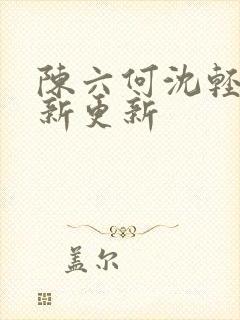 陳六何沈輕
新更新
盖尔